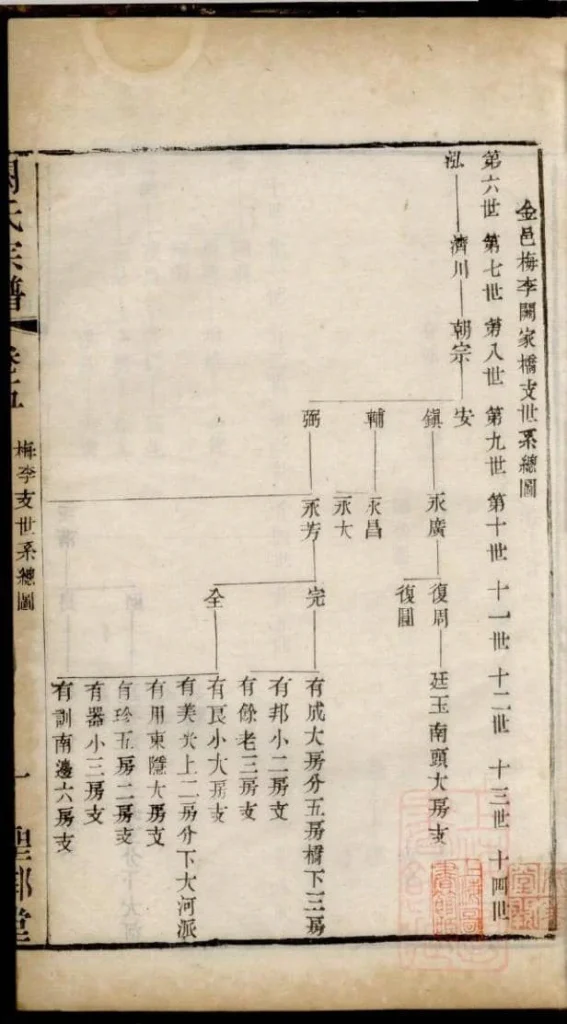 金邑梅李闞家橋支世系總圖
第六世 第七世 第八世 第九世 第十世 十一世 十二世 十三世 十四世
泓 濟川 朝宗 安
鎮 永廣 復周 廷玉南頭大房支
復圓
輔 永昌
永大
弼 永芳 完 有成大房分五房橋下三房
有邦小二房支
有餘老三房支
全 有良小大房支
有美光上二房分下大河派
有用東隱大房支
有珍五房二房支
有器小三房支
有訓南邊六房支
闞氏宗譜 卷五 梅李支世系總圖 一